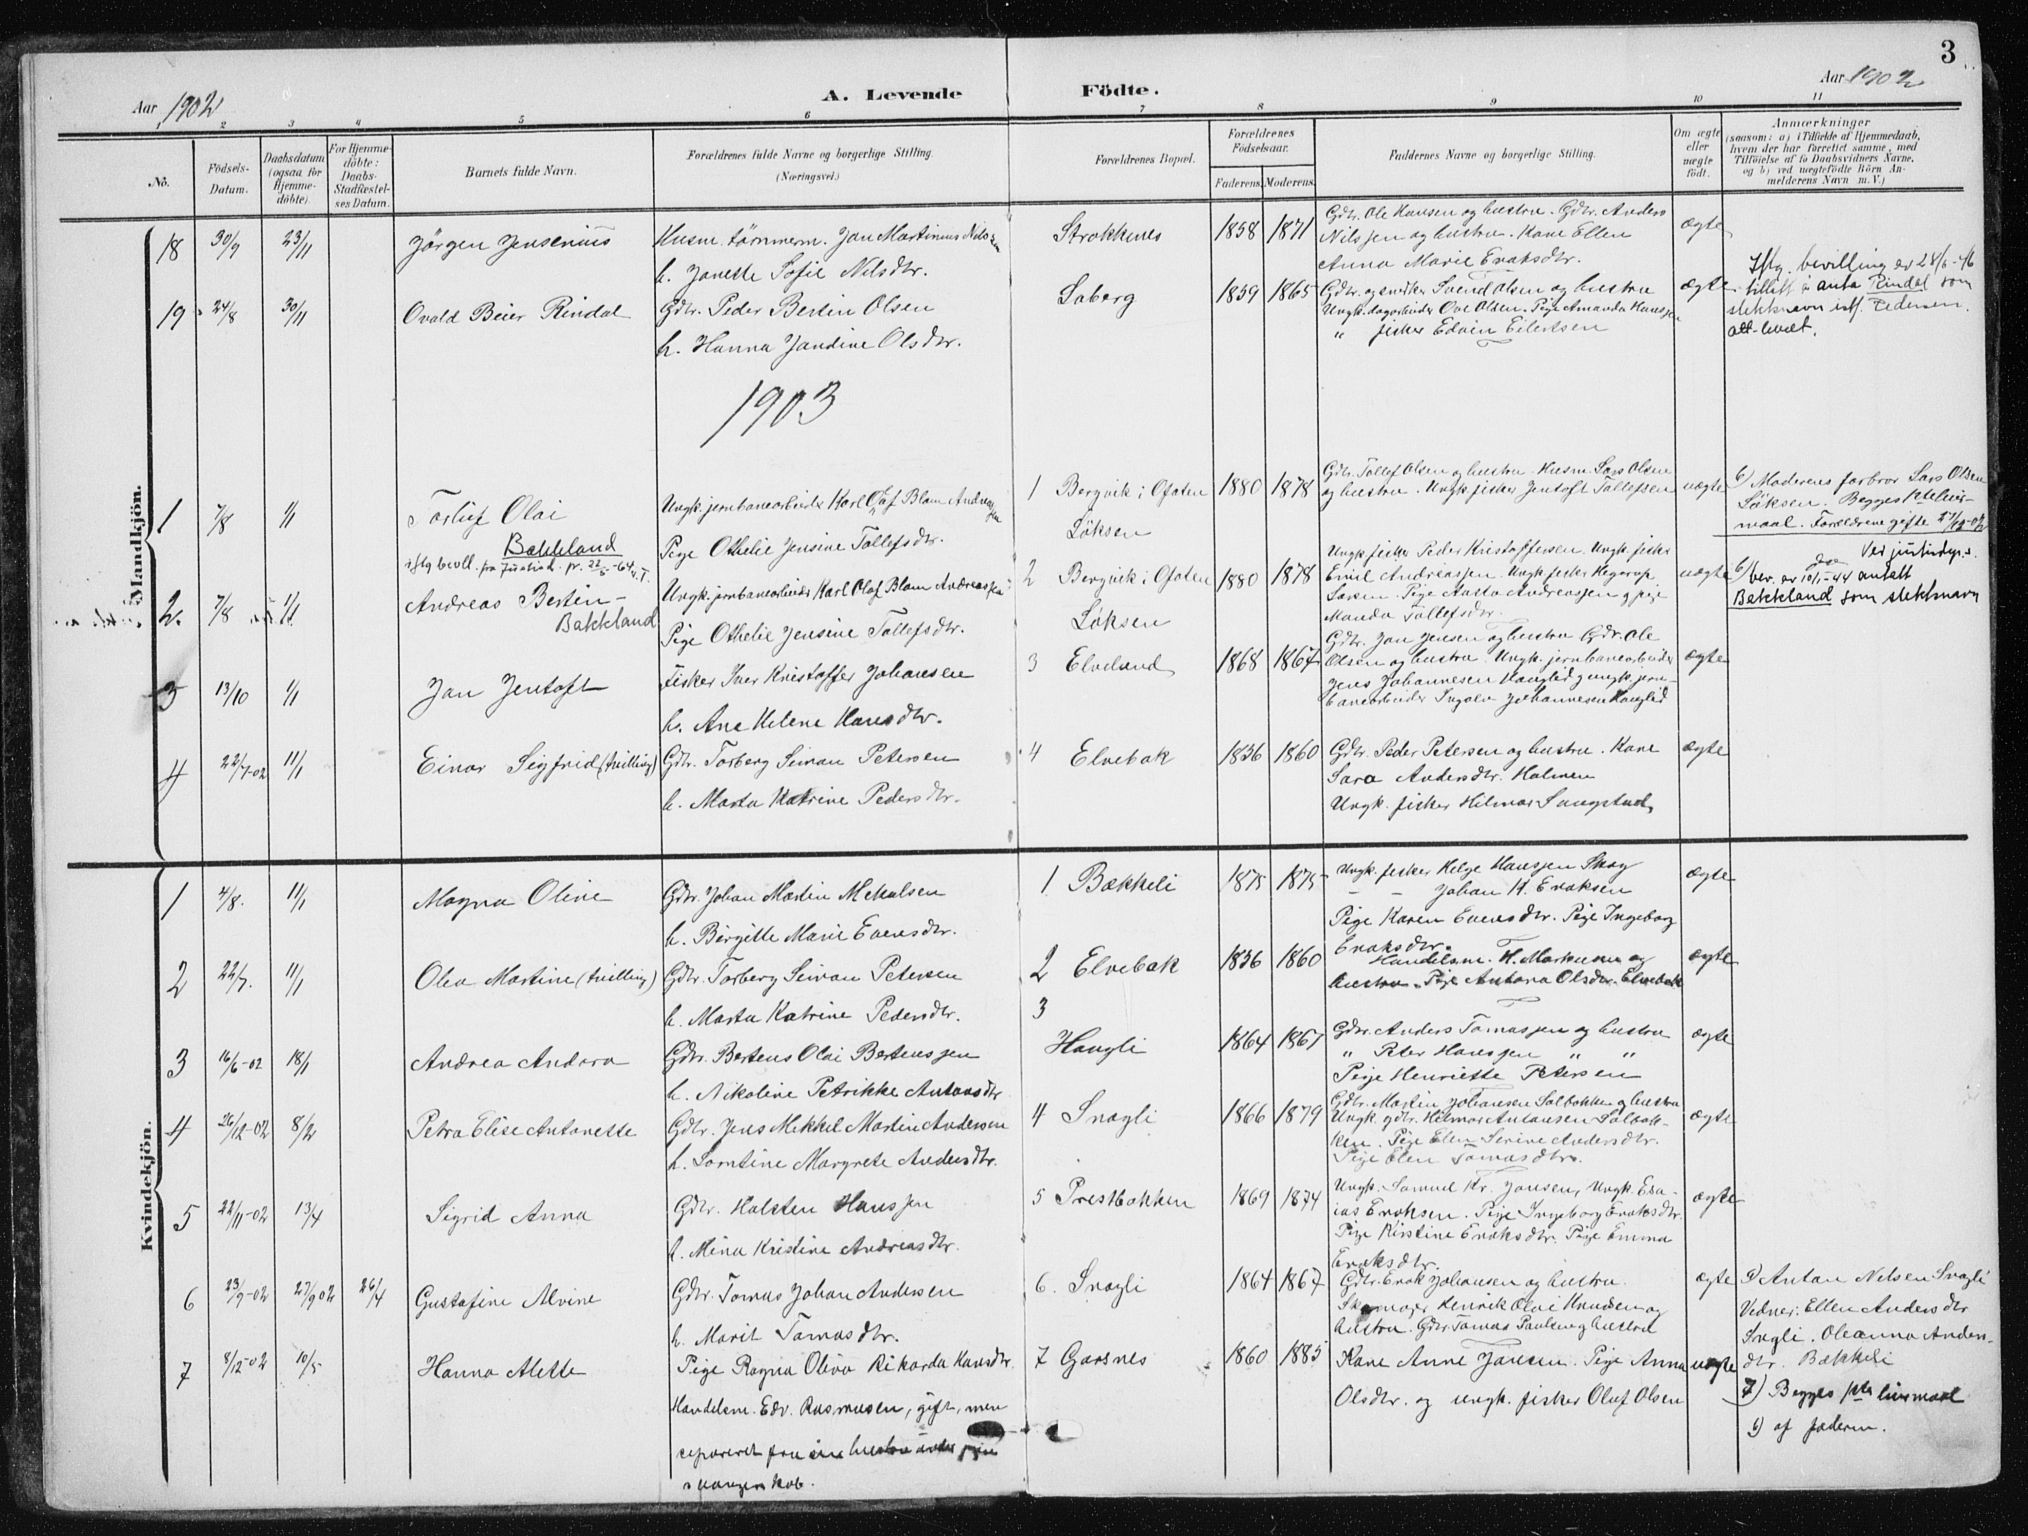 3
Aar 1902
A. Levende Födte.
Aar 1902
1 2 3 4 5 6 7 8 9 10 11
No.
Födsels-Datum.
Daabsdatum (ogsaa for Hjemme-döbte).
For Hjemme-döbte: Daabs-Stadfæstel-ses Datum.
Barnets fulde Navn.
Forældrenes fulde Navne og borgerlige Stilling.
(Næringsvei.)
Forældrenes Bopæl.
Forældrenes Födselsaar.
Faderens. Moderens.
Faddernes Navne og borgerlige Stilling.
Om ægte eller uægte födt.
Anmærkninger
(saasom: a) i Tilfælde af Hjemmedaab, hvem der har forrettet samme, med Tilföielse af to Daabsvidners Navne, og b) ved uægtefödte Börn An-melderens Navn m. V.)
Mandkjön.
18 30/9 23/11 Jørgen Jensenius
Husm. tømmerm. Jan Martinus Nilssen
h. Janette Sofie Nilsdtr.
Strokkenes 1858 1871
Gdbr. Ole Hansen og hustru. Gdbr. Anders
Nilssen og hustru. Kone Ellen
Anna Marie Enoksdtr.
ægte
19 24/8 30/11 Ovald Beier Rindal
Gdbr. Peder Bertin Olsen
h. Hanna Jandine Olsdtr.
Soberg 1859 1865
Gdbr. og snedker Svend Olsen og hustru
Ungk. dagarbeider Ove Olsen. Pige Amanda Hanssen
" fisker Edvin Eilertsen
ægte
Iflg. bevilling av 24/6-46
tillatt å anta Rindal som
slektsnavn istf. Pedersen.
1903
1 7/8 1/1 Torluf Olai
Bakkland
iflg bevll. fra Justisd. pr. 22/5-64
Ungk. jernbanearbeider Karl Olaf Blam Andreassen
Pige Othelie Jensine Tollefsdtr.
1 Bergvik i Ofoten
Løksen
1880 1878
Gdbr. Tollef Olsen og hustru. Husm. Lars Olsen
og hustru. Ungk. fisker Jentoft Tollefssen
uægte
6) Moderens farbror Lars Olsen
Løksen. Begges 1ste leiermaal. Forældrene gifte
2. 7/8 1/1 Andreas Bertin
Bakkland
Ungk. jernbanearbeider Karl Olaf Blam Andreassen
Pige Othelie Jensine Tollefsdtr.
2 Bergvik i Ofoten
Løksen
1880 1878
Ungk. fisker Peder Kristoffersen. Ungk. fisker
Emil Andreassen. Ungk. fisker Hagerup
Larsen. Pige Aasta Andreassen og pige
Manda Tollefsdtr.
uægte
Ved justisdep.s
bev. av 10/5-44 antatt
Bakkland som slektsnavn
3 13/10 1/1 Jan Jentoft
Fisker Iver Kristoffer Johansen
h. Ane Helene Hansdtr.
3 Elvelund 1868 1867
Gdbr. Jan Jensen og hustru. Gdbr. Ole
Olsen og hustru. Ungk. jernbanearbeider
Jens Johannesen Hanglid og ungk. jern-
banearbeider Ingolv Johannesen Hanglid
ægte
4 22/7-02 11/1 Einar Sigfrid (tvilling)
Gdbr. Torberg Simon Petersen
h. Marta Katrine Pedersdtr.
4 Elvebak 1836 1860
Gdbr. Peder Petersen og hustru. Kone
Sara Andersdtr. Holmen
Ungk. fisker Hilmar Laugstad
ægte
Kvindekjön.
1 4/8. 11/1 Magna Oline
Gdbr. Johan Martin Mekalsen
h. Birgitte Marie Evensdtr.
1. Bækkeli 1875 1875
Ungk. fisker Helge Hanssen Skog
- - Johan H. Enoksen
Pige Karen Evensdtr. Pige Ingeborg
Enoksdtr.
ægte
2 22/7. 11/1 Olea Martine (tvilling)
Gdbr. Torberg Simon Petersen
h. Marta Katrine Pedersdtr.
2 Elvebak 1836 1860
Handelsm. H. Markussen og
hustru. Pige Antona Olsdtr. Elvebak
ægte
3 16/6-02 18/1 Andrea Andora
Gdbr. Bertens Olai Bertenssen
h. Nikoline Petrikke Antonsdtr
3
Hangli 1864 1867
Gdbr. Anders Tomassen og hustru
" Peter Hanssen " "
Pige Henriette Petersen
ægte
4 26/12-02 8/2 Petra Elise Antonette
Gdbr. Jens Mekkel Martin Andersen
h. Berntine Margrete Andersdtr.
4 Snogli 1866 1879
Gdbr. Martin Johansen Solbakken og hustru
Ungk. gdbr. Hilmar Antonsen Solbak-
ken. Pige Elen Serine Andersdtr.
Pige Elen Tomasdtr.
ægte
5 22/11-02 13/4 Sigrid Anna
Gdbr. Holsten Hanssen
h. Mina Kristine Andreasdtr.
5 Prestbakken 1869 1874
Ungk. Samuel Kr. Jansen, Ungk. Esa-
ias Enoksen. Pige Ingeborg Enoksdtr.
Pige Kirstine Enoksdtr. Pige Emma
Enoksdtr.
ægte
6 23/9-02 27/9 02 26/4 Gustafine Alvine
Gdbr. Tomas Johan Andersen
h. Marit Tomasdtr.
6. Snogli 1864 1867
Gdbr. Enok Johansen og hustru.
Skomager Henrik Olai Knudsen og
hustru. Gdbr Tomas Paulsen og hustru
ægte
a) Antan Nilsen Snogli
Vidner: Ellen Andersdtr
Snogli. Oleanna Anders-
dtr. Bækkeli
7 8/12-02 10/5 Hanna Alette
Pige Ragna Oliva Rikarda Hansdtr.
Handelsm. Edv. Rasmusen, gift, men
separeret fra sin hustru under pigens
svangerskab.
7 Garsnes 1860 1885
Kone Anne Jansen. Pige Anna
Olsdtr. og ungk. fisker Oluf Olsen
uægte
7) Begges 1ste leiermaal
6) af faderen.